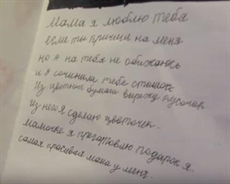 Мама я люблю тебя
если ты кричиш на меня
но я на тебя не обижаюсь
и я сочинила тебе стишок
Из цветной бумаги вырежу кусочек
Из него я сделаю цветочек.
мамочке я приготовлю подарок я.
самая красивая мама у меня